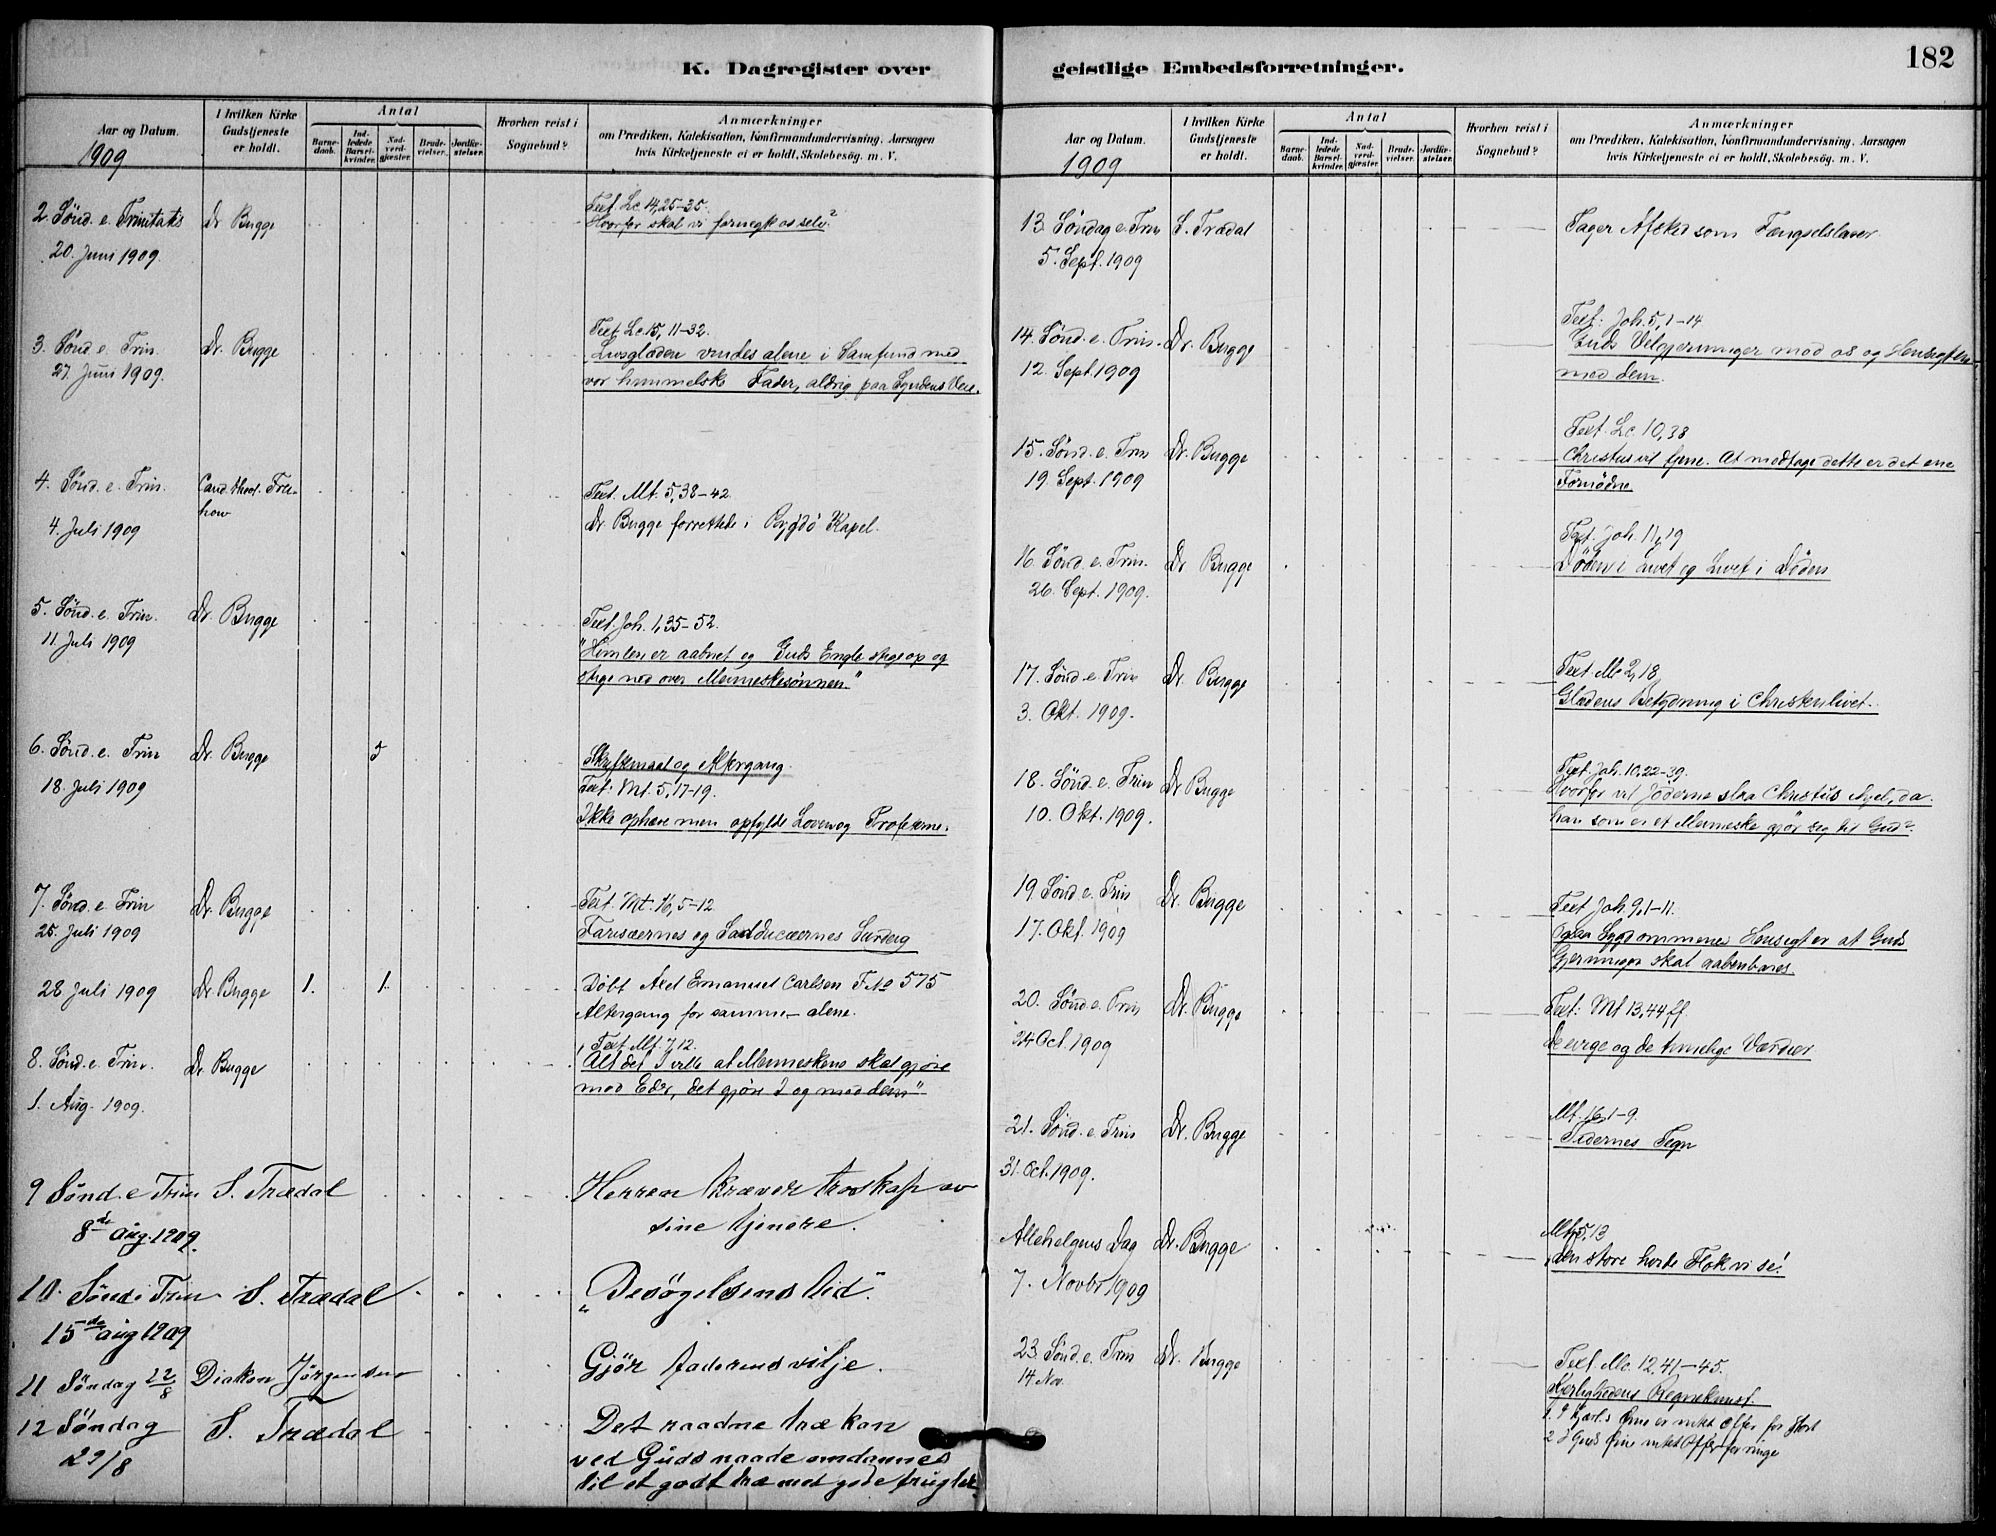 K. Dagregister over
Aar og Datum.
1909
I hvilken Kirke Gudstjeneste er holdt.
Antal
Barnedaab.
Indledede Barselkvinder.
Nadverdgjæster.
Brudevielser.
Jordfæstelser.
Hvorhen reist i Sognebud?
Anmærkninger
om Prædiken, Katekisation, Konfirmandundervisning, Aarsagen
hvis Kirketjeneste ei er holdt, Skolebesøg. m. V.
2. Sønd. e. Trinitatis Dr Bugge
20. Juni 1909.
Text. Lc. 14, 25-35.
Hvorfor skal vi fornegte os selv?
3. Sønd. e. Trin. Dr. Bugge
27. Juni 1909.
Text Lc. 15, 11-32.
Livsglæden vindes alene i Samfund med
vor himmelske Fader, aldrig paa Syndens Veie.
4. Sønd. e. Trin. Cand. theol.
4. Juli 1909
Text. Mt. 5, 38-42.
Dr Bugge forrettede i Bygdø Kapel.
5. Sønd. e. Trin. Dr. Bugge
11. Juli 1909
Text. Joh. 1, 35-52.
"Himlen er aabnet og Guds Engle stige op og
stige ned over Menneskesønnen."
6. Sønd. e. Trin Dr. Bugge 5
18. Juli 1909
Skriftemaal og Altergang.
Text: Mt. 5, 17-19.
Ikke ophæve men opfylde Loven og Profeterne.
7. Sønd. e. Trin Dr. Bugge
25. Juli 1909
Text. Mt. 16, 5-12
Farisæernes og Sadducæernes Surdeig
28 Juli 1909 Dr Bugge 1. 1.
Døbt Axel Emanuel Carlsen F No 575
Altergang for samme - alene.
8. Sønd. e. Trin. Dr Bugge
1. Aug. 1909.
Text Mt. 7, 12.
"Alt det I ville at Menneskene skal gjøre
mod Eder, det gjøre I og mod dem"
9 Sønd. e Trin S. Trædal
8de aug. 1909.
Herren kræver troskap av
sine tjenere.
10. Sønd e Trin S. Trædal
15de aug 1909
"Besøgelsens tid".
11 Søndag 22/8 Diakon Jørgensen
Gjør faderens vilje.
12 Søndag S. Trædal
29/8
Det raadne træ kan
ved Guds naade omdannes
til et godt træ med gode frugter.
geistlige Embedsforretninger.
182
Aar og Datum.
1909
I hvilken Kirke Gudstjeneste er holdt.
Antal
Barnedaab.
Indledede Barselkvinder.
Nadverdgjæster.
Brudevielser.
Jordfæstelser.
Hvorhen reist i Sognebud?
Anmærkninger
om Prædiken, Katekisation, Konfirmandundervisning, Aarsagen
hvis Kirketjeneste ei er holdt, Skolebesøg. m. V.
13. Søndag e. Trin S. Trædal
5. Sept. 1909
Tager Afsked som Fængselslærer.
14. Sønd. e. Trin. Dr. Bugge
12. Sept. 1909
Text: Joh. 5, 1-14
Guds Velgjerninger mod os og Hensigtene
med dem.
15. Sønd. e. Trin Dr. Bugge
19. Sept. 1909
Text. Lc. 10, 38
Christus vil tjene. At modtage dette er det ene
Fornødne
16. Sønd. e. Trin. Dr Bugge
26. Sept. 1909.
Text. Joh. 11, 19
Døden i Livet og Livet i Døden
17. Sønd. e. Trin Dr. Bugge
3. Okt. 1909.
Text. Mc 2, 18
Glædens Betydning i Christenlivet.
18. Sønd. e. Trin Dr Bugge
10. Okt. 1909.
Text. Joh. 10, 22-39.
Hvorfor vil Jøderne slaa Christus ihjel, da
han som er et Menneske gjør sig til Gud?
19. Sønd. e. Trin Dr. Bugge
17. Okt. 1909
Text Joh. 9, 1-11.
Ogsaa Sygdommenes Hensigt er at Guds
Gjerninger skal aabenbares
20. Sønd. e. Trin Dr. Bugge
24 Oct. 1909
Text: Mt 13, 44 ff
De evige og de timelige Værdier
21. Sønd. e. Trin Dr. Bugge
31. Oct. 1909.
Mt. 16, 1-9.
Tidernes Tegn
Allehelgens Dag Dr. Bugge
7. Novbr 1909
Mt. 5, 13
"Den store hvide Flok vi se"!
23. Sønd. e. Trin Dr. Bugge
14 Nov.
Text. Mc. 12, 41-45.
Kjerlighedens Regnekunst.
1. I Kjærl.s Øine er intet Offer for stort
2 I Guds Øine intet Offer for ringe